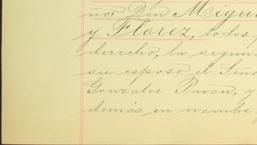 ñor Don Migu
y Florez, todos
derecho, la segun
su esposo, el Seño
Gonzalez Pavan, y
demás, en nombre